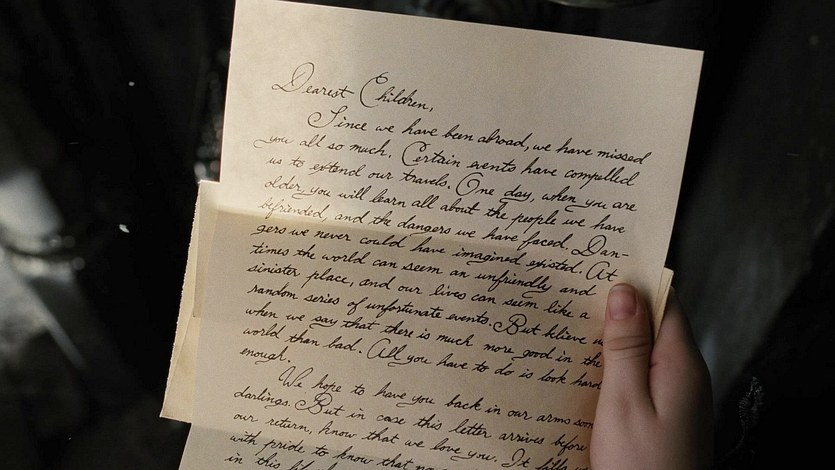 Dearest Children,
Since we have been abroad, we have missed
you all so much. Certain events have compelled
us to extend our travels. One day, when you are
older, you will learn all about the people we have
befriended, and the dangers we have faced. Dan-
gers we never could have imagined existed. At
times the world can seem an unfriendly and
sinister place, and our lives can seem like a
random series of unfortunate events. But believe
when we say that there is much more good in the
world than bad. All you have to do is look hard
enough.
We hope to have you back in our arms soon
darlings. But in case this letter arrives before
our return, know that we love you. It fills
with pride to know that no
in this